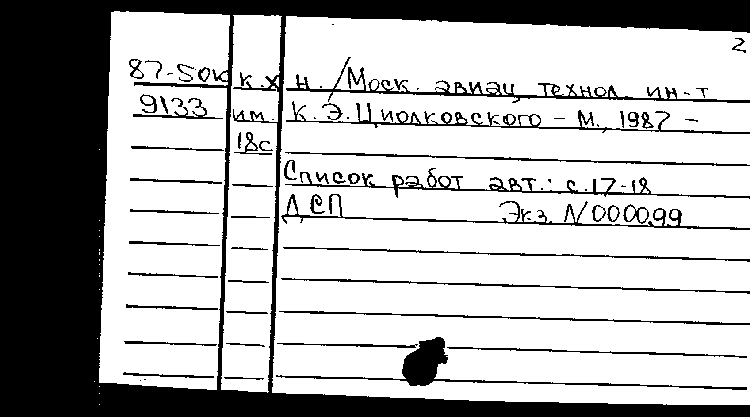 2
87-50к к.х н. / Моск. авиац. технол. ин-т
9133 им. К.Э.Циолковского - М., 1987 -
18с
Список работ авт.: с.17-18
ДСП Экз. N000099